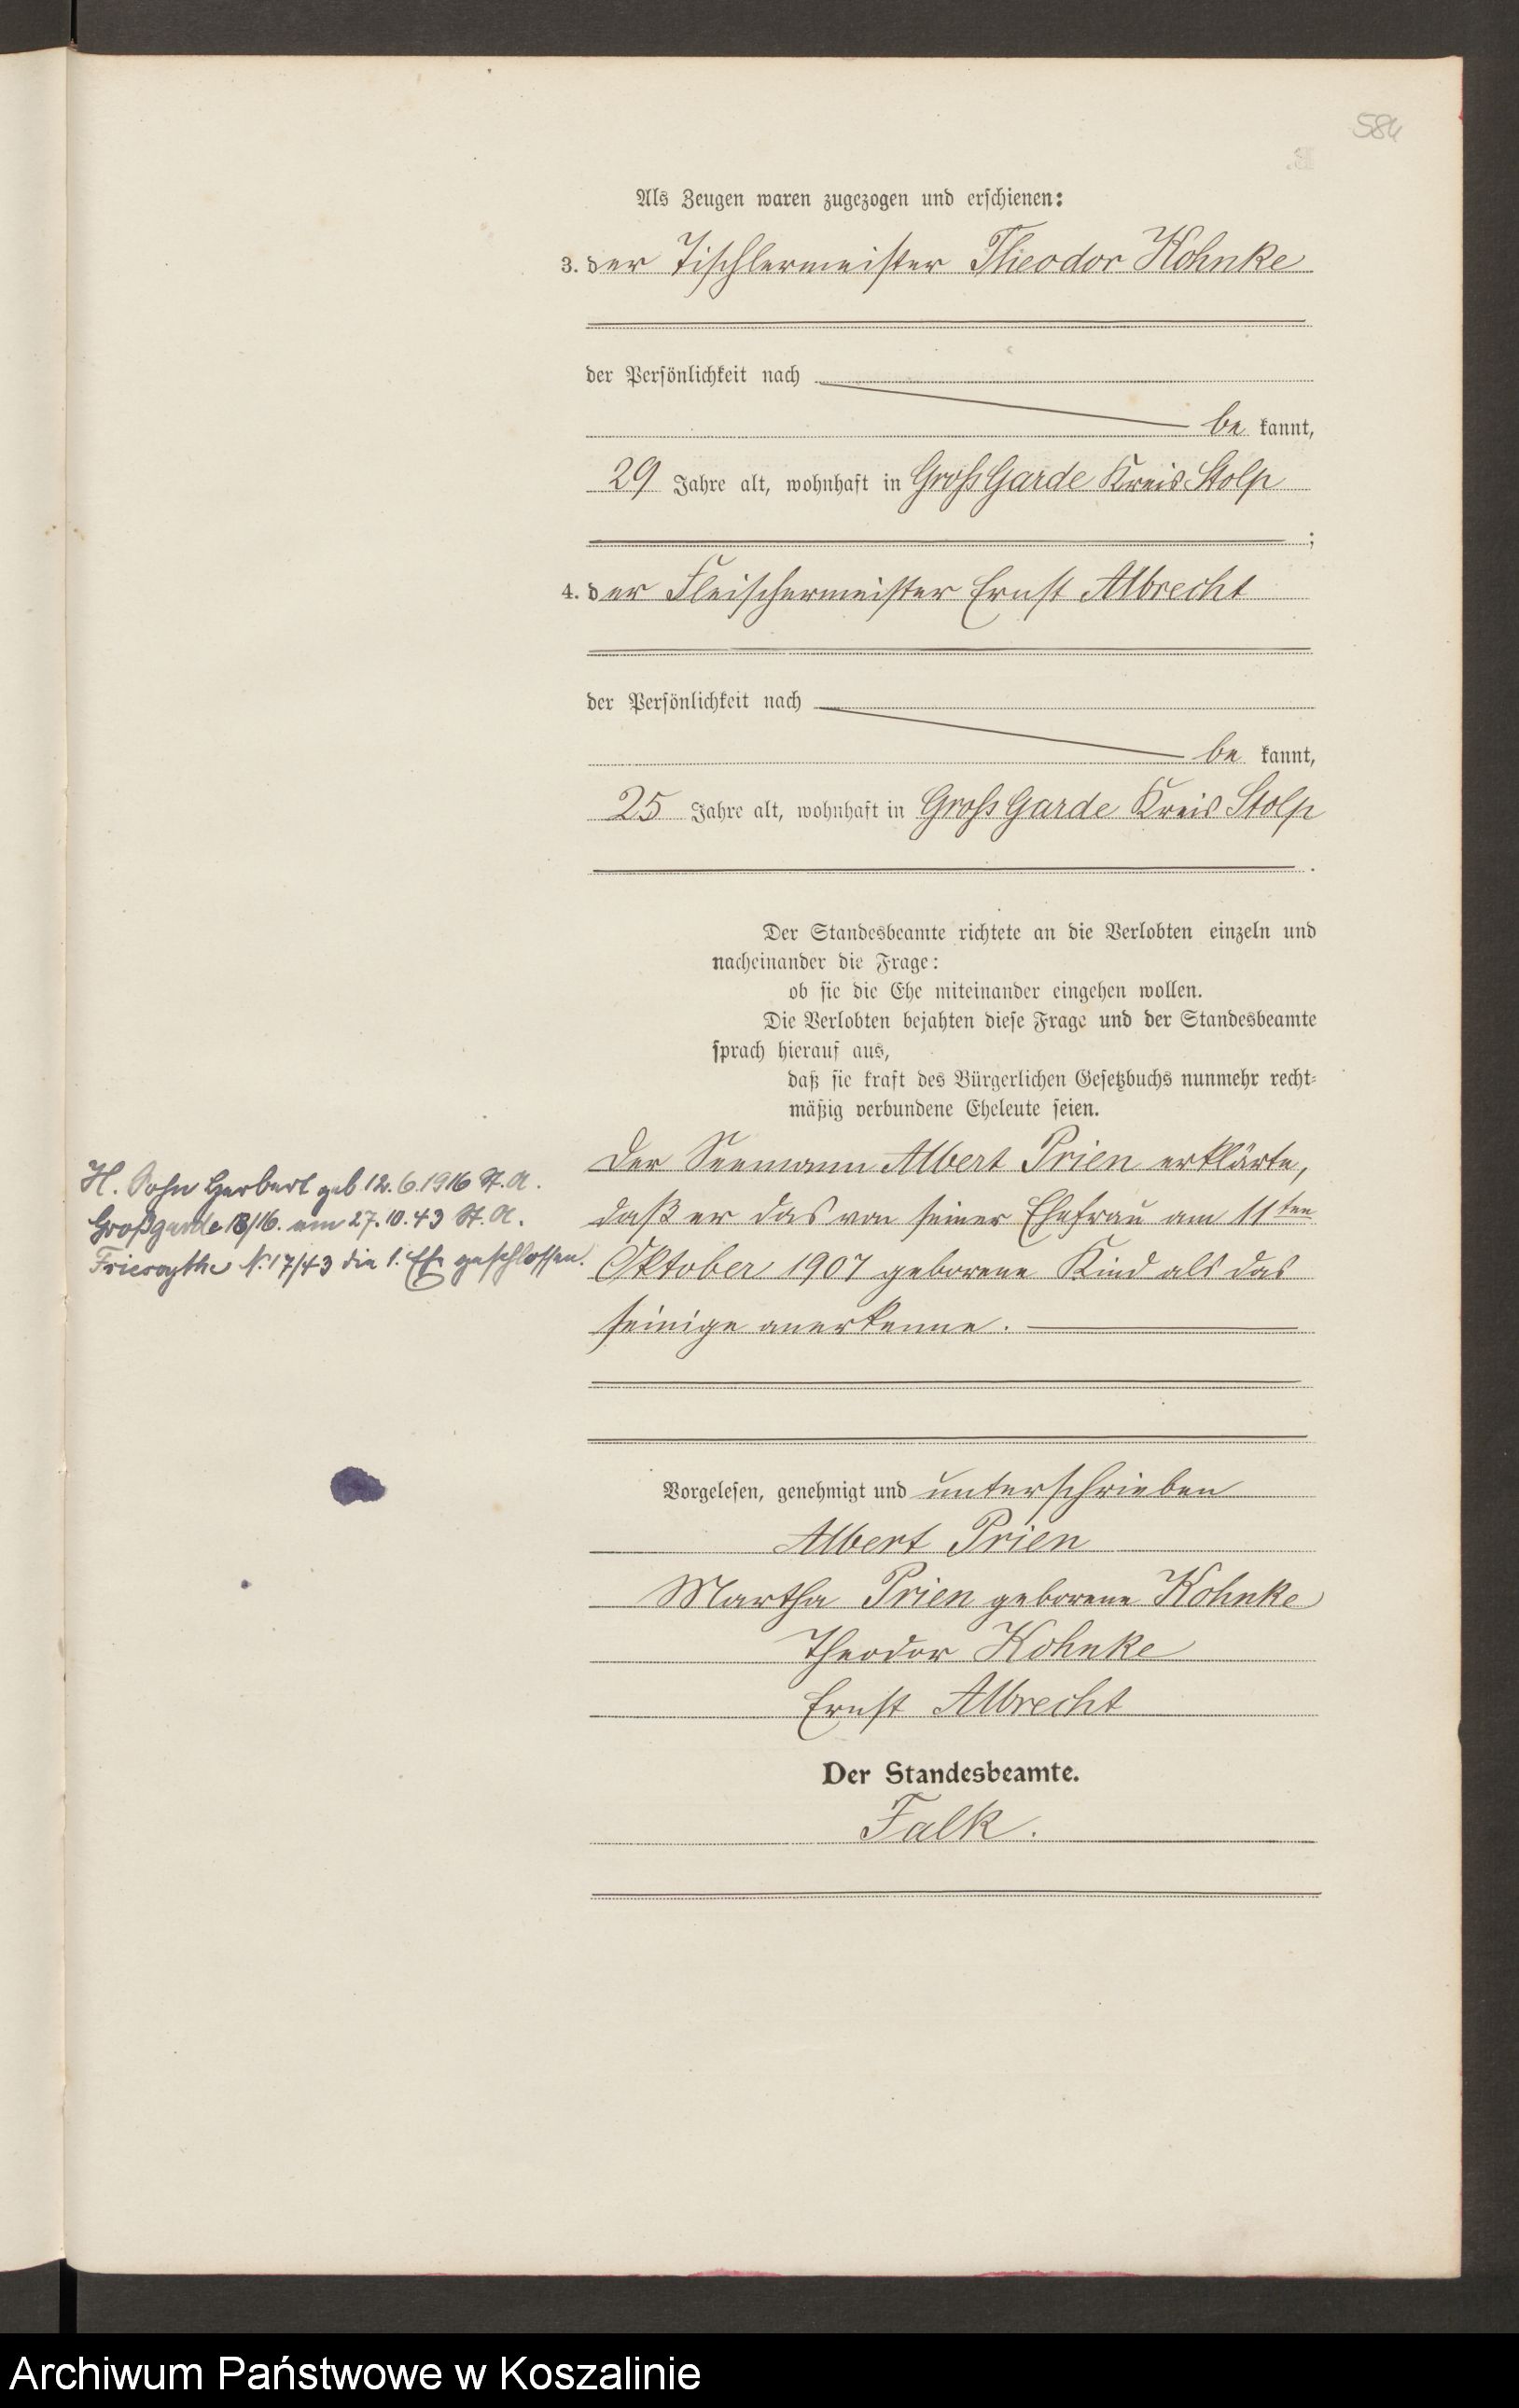 584
Als Zeugen waren zugezogen und erschienen:
3. der Tischlermeister Theodor Kohnke
der Persönlichkeit nach
be kannt,
29 Jahre alt, wohnhaft in Groß Garde Kreis Stolp
;
4. der Fleischermeister Ernst Albrecht
der Persönlichkeit nach
be kannt,
25 Jahre alt, wohnhaft in Groß Garde Kreis Stolp
.
Der Standesbeamte richtete an die Verlobten einzeln und
nacheinander die Frage:
ob sie die Ehe miteinander eingehen wollen.
Die Verlobten bejahten diese Frage und der Standesbeamte
sprach hierauf aus,
daß sie kraft des Bürgerlichen Gesetzbuchs nunmehr recht-
mäßig verbundene Eheleute seien.
Der Seemann Albert Prien erklärte,
daß er das von seiner Ehefrau am 11ten
Oktober 1907 geborene Kind als das
seinige anerkenne.
H. Sohn Herbert geb. 12.6.1916 St. A.
Großgarde 18/16. am 27.10.43 St. A.
Friesoythe N. 17/43 die 1. Ehe geschlossen.
Vorgelesen, genehmigt und unterschrieben
Albert Prien
Martha Prien geborene Kohnke
Theodor Kohnke
Ernst Albrecht
Der Standesbeamte.
Falk.
Archiwum Państwowe w Koszalinie